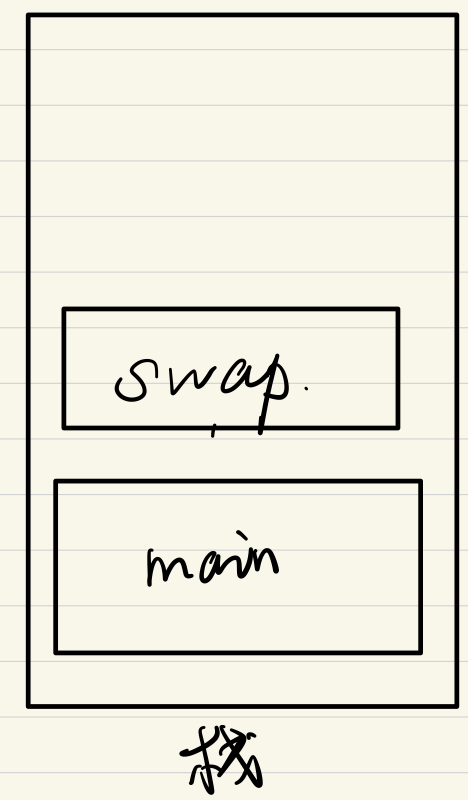 swap.
main
栈